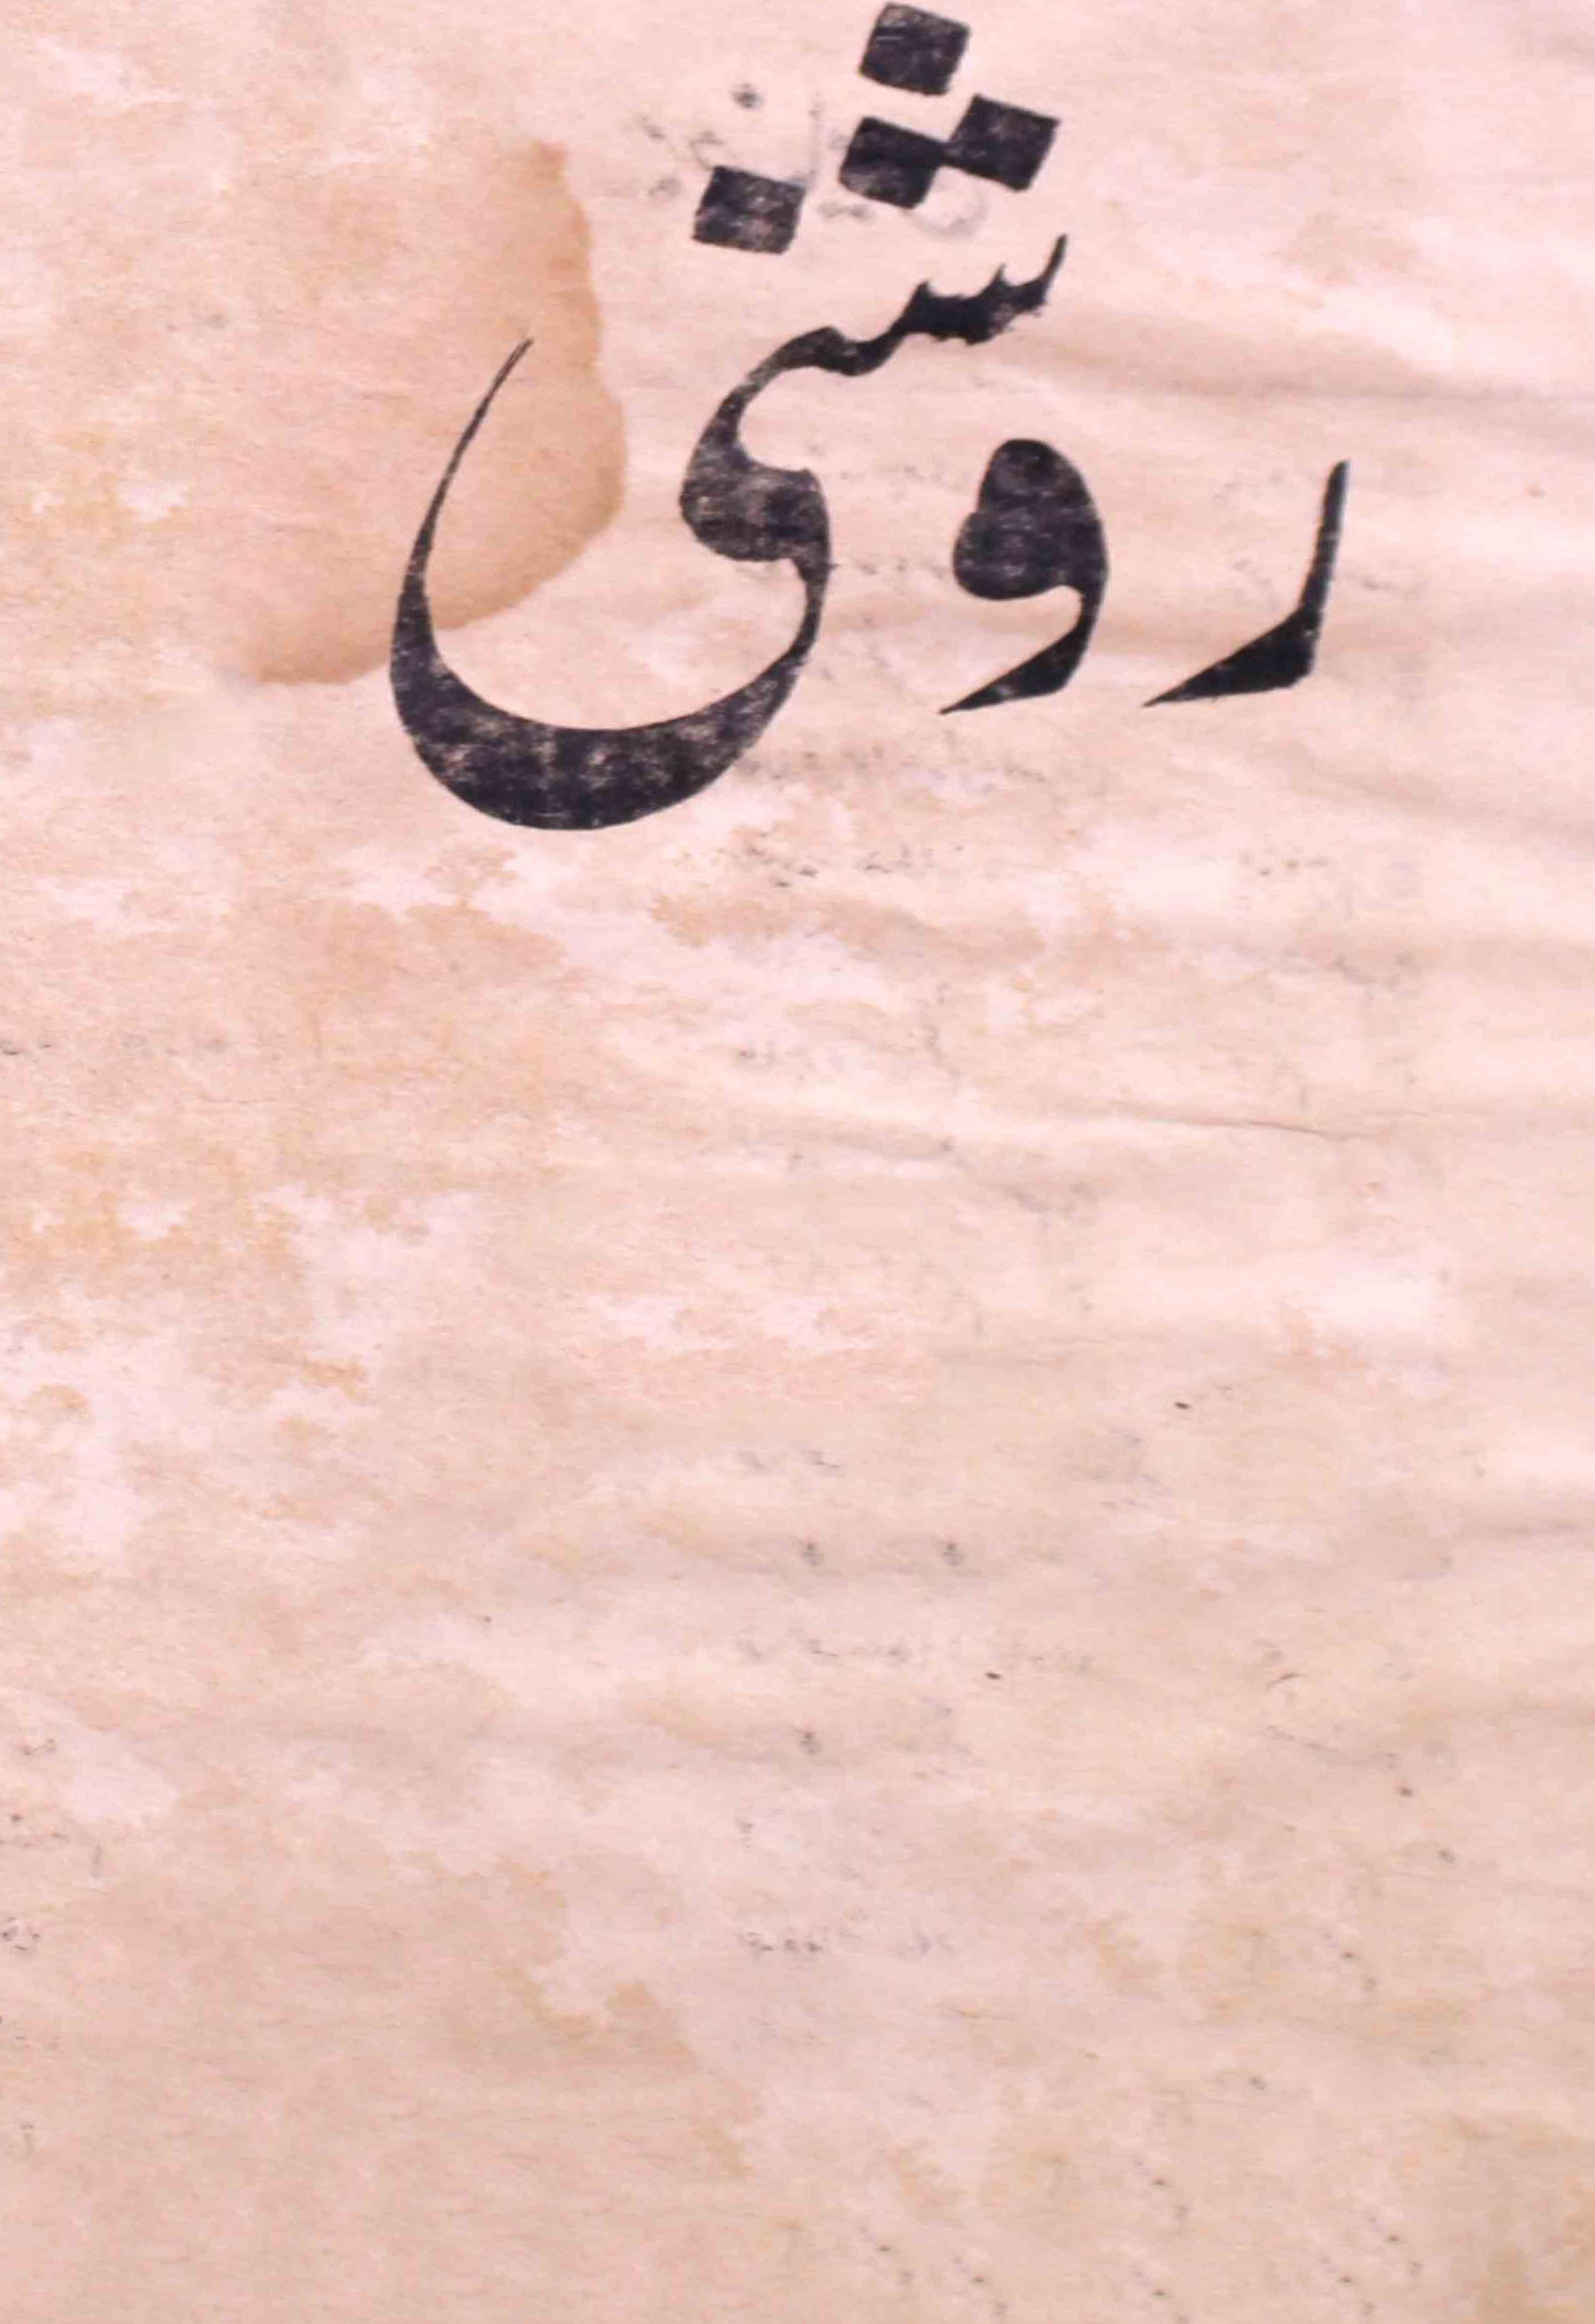 روشنی